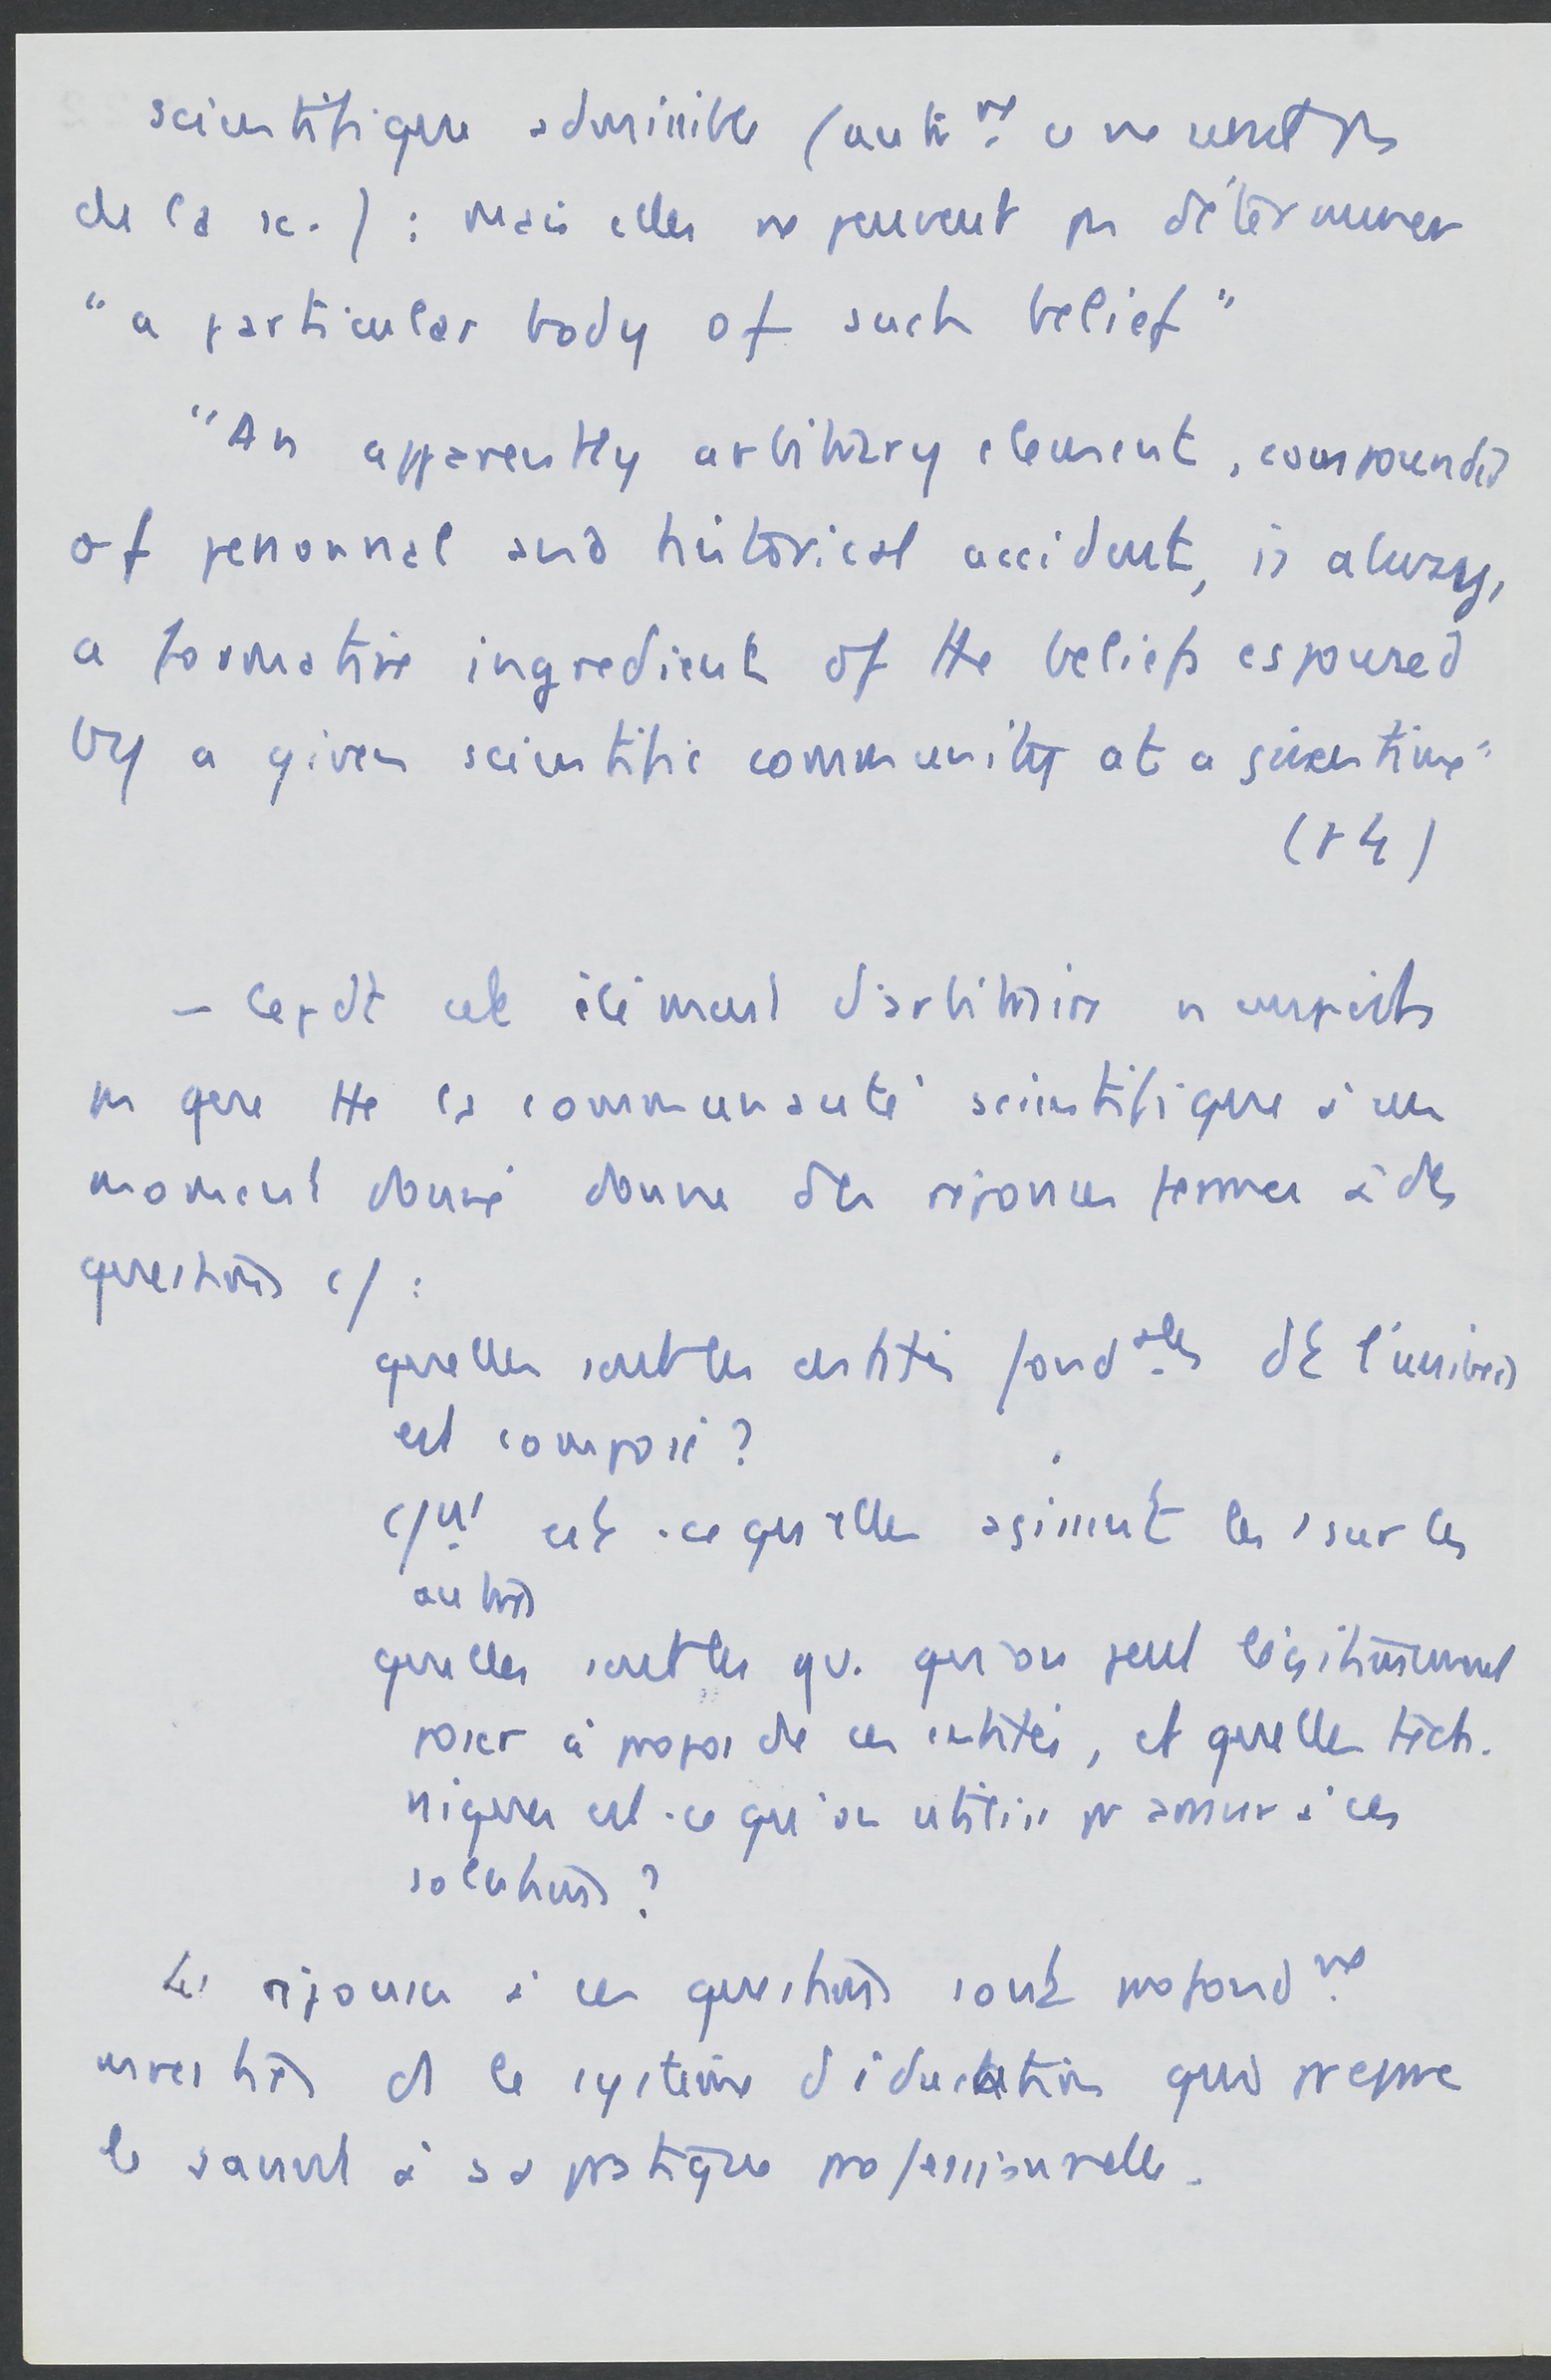 scientifique admissible (autr^t ce ne serait pas
de la sc.) : mais elles ne peuvent pas déterminer
"a particular body of such belief"
"An apparently arbitrary element, compounded
of personnal and historical accident, is always
a formative ingredient of the beliefs espoused
by a given scientific community at a given time"
(p 4)
– Cepdt cet élément d'arbitraire n'empêche
pas que tte la communauté scientifique à un
moment donné donne des réponses fermes à des
questions c/ :
quelles sont les entités fond^ales dt l'univers
est composé ?
c/^nt est-ce qu'elles agissent les 1 sur les
autres
quelles sont les qu. qu'on peut légitimement
poser à propos de ces entités, et quelles tech-
niques est-ce qu'on utilise pr arriver à ces
solutions ?
Les réponses à ces questions sont profond^nt
investies ds le système d'éducation qui prépare
le savant à sa pratique professionnelle.